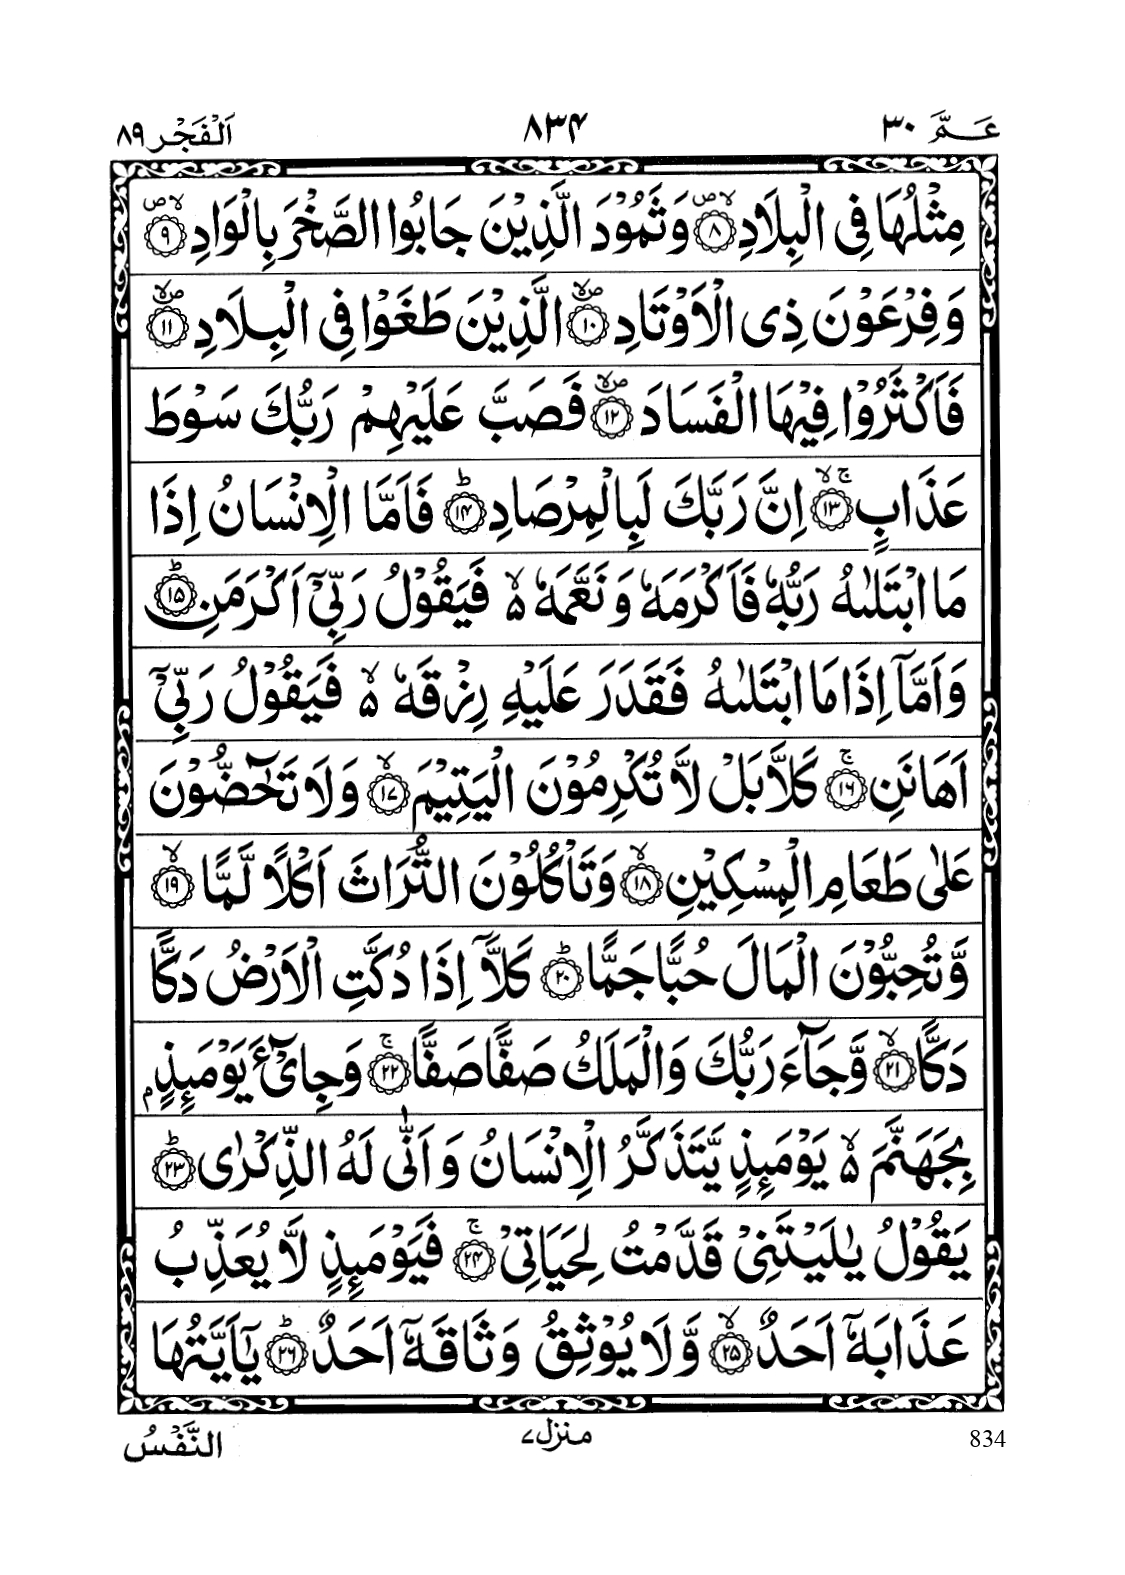 عَـمَّ ٣٠
٨٣۴
اَلْفَجْر ٨٩
مِثْلُهَا فِى الْبِلَادِ ۪ۙ‏﴿۸﴾ وَثَمُوْدَ الَّذِيْنَ جَابُوا الصَّخْرَ بِالْوَادِ ۪ۙ‏﴿۹﴾
وَفِرْعَوْنَ ذِى الْاَوْتَادِ ۪ۙ‏﴿۱۰﴾ الَّذِيْنَ طَغَوْا فِى الْبِلَادِ ۪ۙ‏﴿۱۱﴾
فَاَكْثَرُوْا فِيْهَا الْفَسَادَ ۪ۙ‏﴿۱۲﴾ فَصَبَّ عَلَيْهِمْ رَبُّكَ سَوْطَ
عَذَابٍ ۚۙ‏﴿۱۳﴾ اِنَّ رَبَّكَ لَبِالْمِرْصَادِؕ‏﴿۱۴﴾ فَاَمَّا الْاِنْسَانُ اِذَا
مَا ابْتَلٰٮهُ رَبُّهٗ فَاَكْرَمَهٗ وَنَعَّمَهٗ ۙ۬ فَيَقُوْلُ رَبِّىْۤ اَكْرَمَنِؕ‏﴿۱۵﴾
وَاَمَّاۤ اِذَا مَا ابْتَلٰٮهُ فَقَدَرَ عَلَيْهِ رِزْقَهٗ ۙ۬ فَيَقُوْلُ رَبِّىْۤ
اَهَانَنِ‌ۚ‏﴿۱۶﴾ كَلَّا بَلْ لَّا تُكْرِمُوْنَ الْيَتِيْمَۙ‏﴿۱۷﴾ وَلَا تَحٰٓضُّوْنَ
عَلٰى طَعَامِ الْمِسْكِيْنِۙ‏﴿۱۸﴾ وَتَاْكُلُوْنَ التُّرَاثَ اَكْلًا لَّمًّاۙ‏﴿۱۹﴾
وَّتُحِبُّوْنَ الْمَالَ حُبًّا جَمًّاؕ‏﴿۲۰﴾ كَلَّاۤ اِذَا دُكَّتِ الْاَرْضُ دَكًّا
دَكًّاۙ‏﴿۲۱﴾ وَّجَآءَ رَبُّكَ وَالْمَلَكُ صَفًّا صَفًّاۚ‏﴿۲۲﴾ وَجِاىْٓءَ يَوْمَٮِٕذٍۭ
بِجَهَنَّمَ ۙ۬ يَوْمَٮِٕذٍ يَّتَذَكَّرُ الْاِنْسَانُ وَاَنّٰى لَهُ الذِّكْرٰىؕ‏﴿۲۳﴾
يَقُوْلُ يٰلَيْتَنِىْ قَدَّمْتُ لِحَيَاتِىْ‌ۚ‏﴿۲۴﴾ فَيَوْمَٮِٕذٍ لَّا يُعَذِّبُ
عَذَابَهٗۤ اَحَدٌ ۙ‏﴿۲۵﴾ وَّلَا يُوْثِقُ وَثَاقَهٗۤ اَحَدٌ ؕ‏﴿۲۶﴾ يٰۤاَيَّتُهَا
النَّفْسُ
منزل ٧
834